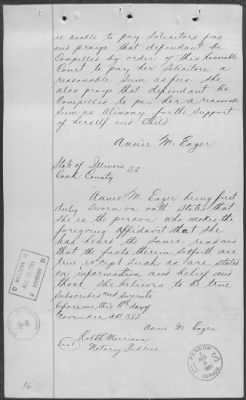 is unable to pay Solicitors fees
and prays that defendant be
Compelled by order of this Honorable
Court to pay her Solicitors a
reasonable Sum as fees. She
also prays that defendant be
Compelled to pay her a reasonable
Sum as Alimony for the Support
of herself and Child
Annie M. Eager
State of Illinois
Cook County SS
Annie M. Eager being first
duly Sworn on oath States that
she is the person who makes the
foregoing Affidavit that She
has heard the Same read and
that the facts therein Set forth are
true except Such as are stated
on information and belief and
those She believes to be true
Subscribed and Sworn to
before me this day of
November
Annie M. Eager
Notary Public
PENSION
OFFICE
U S
16